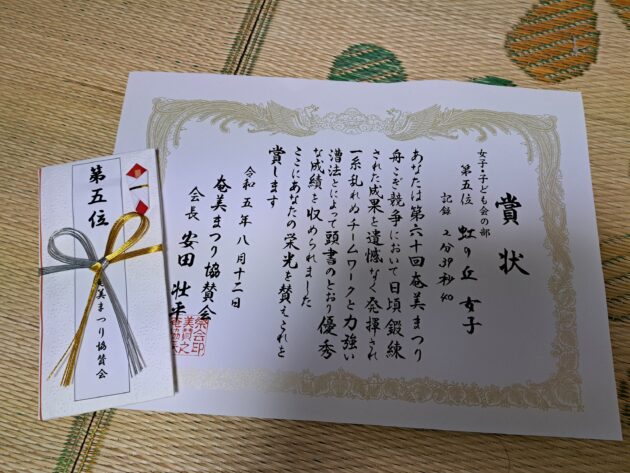 賞状
女子・子ども会の部
第五位 虹ヶ丘 女子
記録 2分39秒40
あなたは第六十回奄美まつり
舟こぎ競争において日頃鍛練
された成果を遺憾なく発揮され
一糸乱れぬチームワークと力強い
漕法とによって頭書のとおり優秀
な成績を収められました
ここにあなたの栄光を讃えこれを
賞します
令和五年八月十二日
奄美まつり協賛会
会長 安田壮平
第五位
奄美まつり協賛会